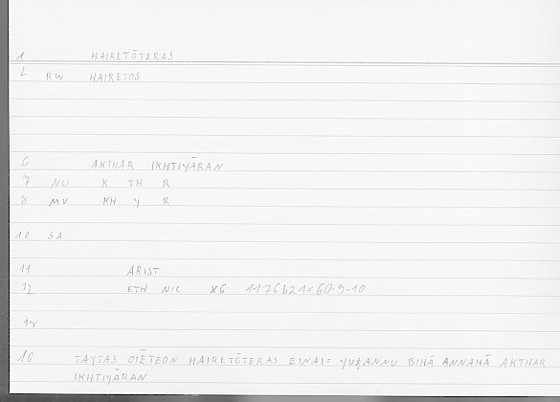 1 HAIRETŌTERAS
2 RW HAIRETOS
6 AKTHAR IKHTIYĀRAN
7 NU K TH R
8 MV KH Y R
10 SA
11 ARIST
12 ETH NIC X6 1176b21=60.9-10
14
16 TAYTAS OIĒTEON HAIRETŌTERAS EINAI= YUẒANNU BIHĀ ANNAHĀ AKTHAR
IKHTIYĀRAN